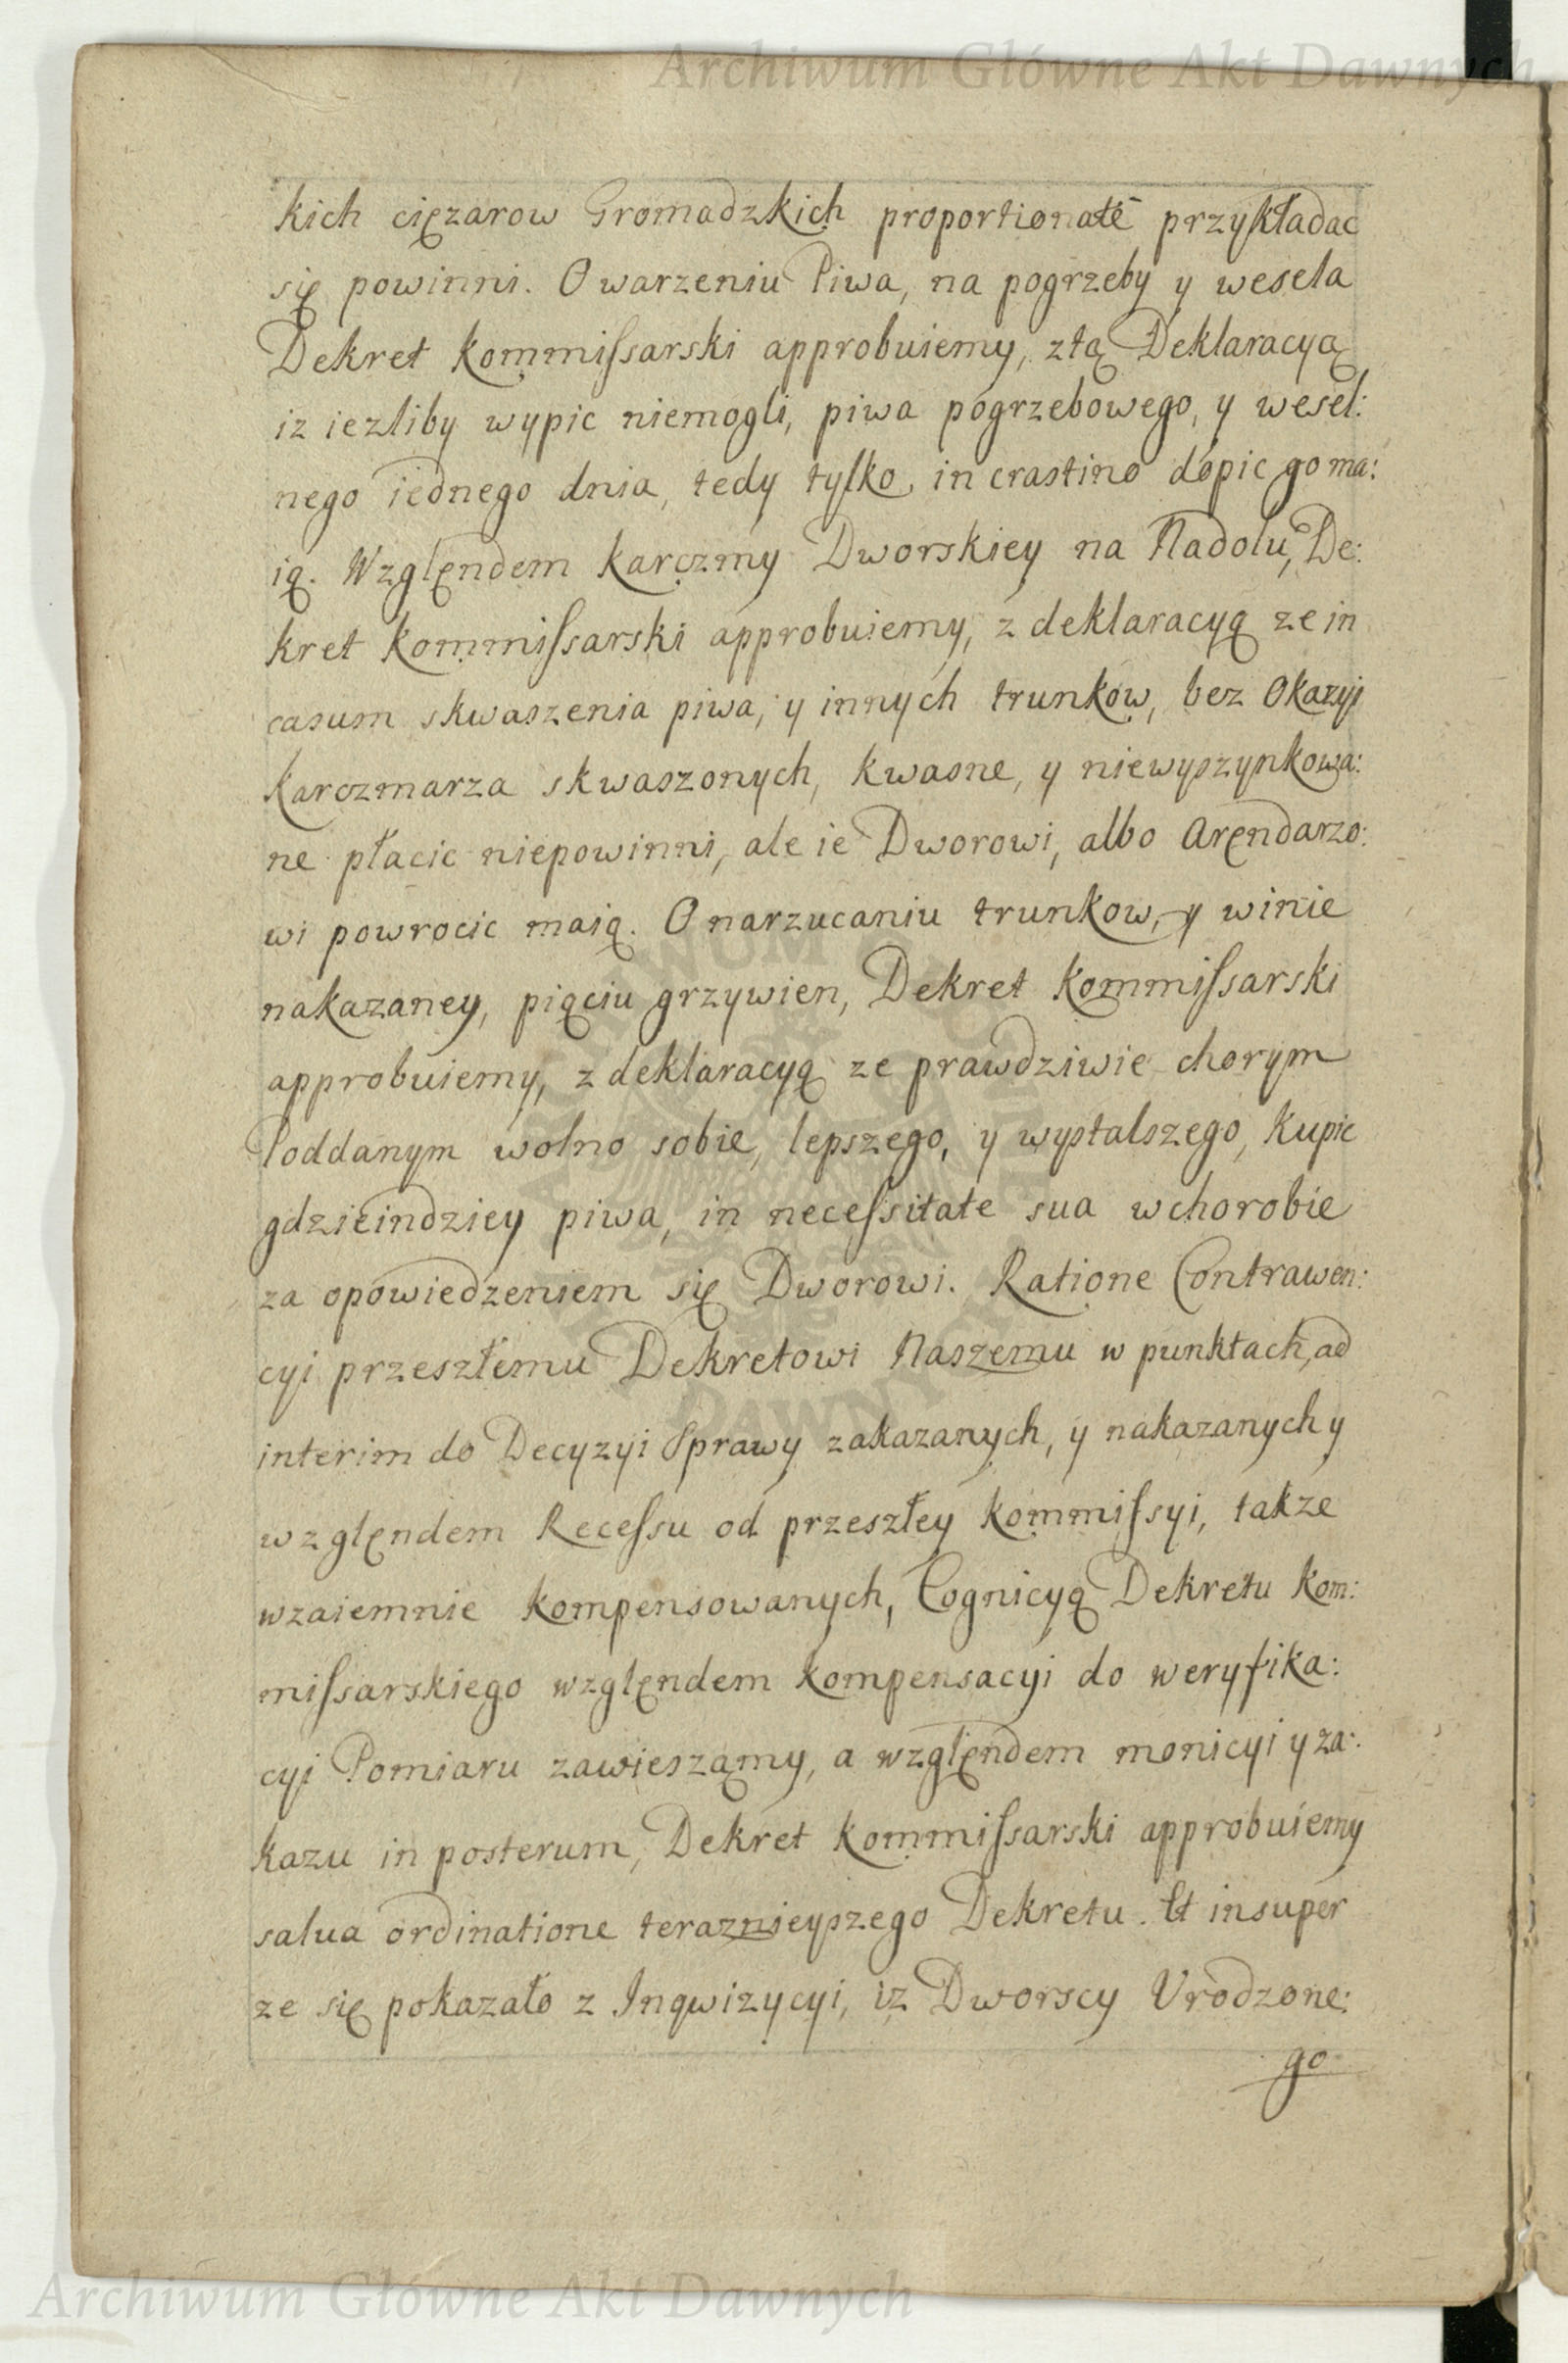 Archiwum Główne Akt Dawnych
kich cięzarow Gromadzkich proportionate przykładac
się powinni. O warzeniu Piwa, na pogrzeby y wesela
Dekret Kommiſsarski approbuiemy, z tą Deklaracyą
iz iezliby wypic niemogli, piwa pogrzebowego, y wesel:
nego iednego dnia, tedy tylko, in crastino dopic go ma:
ią. Względem Karczmy Dworskiey na Nadolu, De:
kret Kommiſsarski approbuiemy, z deklaracyą ze in
casum skwaszenia piwa, y innych trunkow, bez Okazyi
Karczmarza skwaszonych, kwasne, y niewyszynkowa:
ne płacic niepowinni, ale ie Dworowi, albo Arendarzo:
wi powrocic maią. O narzucaniu trunkow, y winie
nakazaney, piąciu grzywien, Dekret Kommiſsarski
approbuiemy, z deklaracyą ze prawdziwie chorym
Poddanym wolno sobie, lepszego, y wystalszego, kupic
gdzieindziey piwa, in neceſsitate sua w chorobie
za opowiedzeniem się Dworowi. Ratione Contrawen:
cyi przeszłemu Dekretowi Naszemu w punktach, ad
interim do Decyzyi Sprawy zakazanych, y nakazanych y
wzglęndem Receſsu od przeszłey Kommiſsyi, takze
wzaiemnie kompensowanych, Cognicyą Dekretu Kom:
miſsarskiego wzglęndem Kompensacyi do weryfika:
cyi Pomiaru zawieszamy, a wzglęndem monicyi y za:
kazu in posterum, Dekret Kommiſsarski approbuiemy
salua ordinatione teraznieyszego Dekretu. Et insuper
ze się pokazało z Inqwizycyi, iz Dworscy Urodzone:
go
Archiwum Główne Akt Dawnych